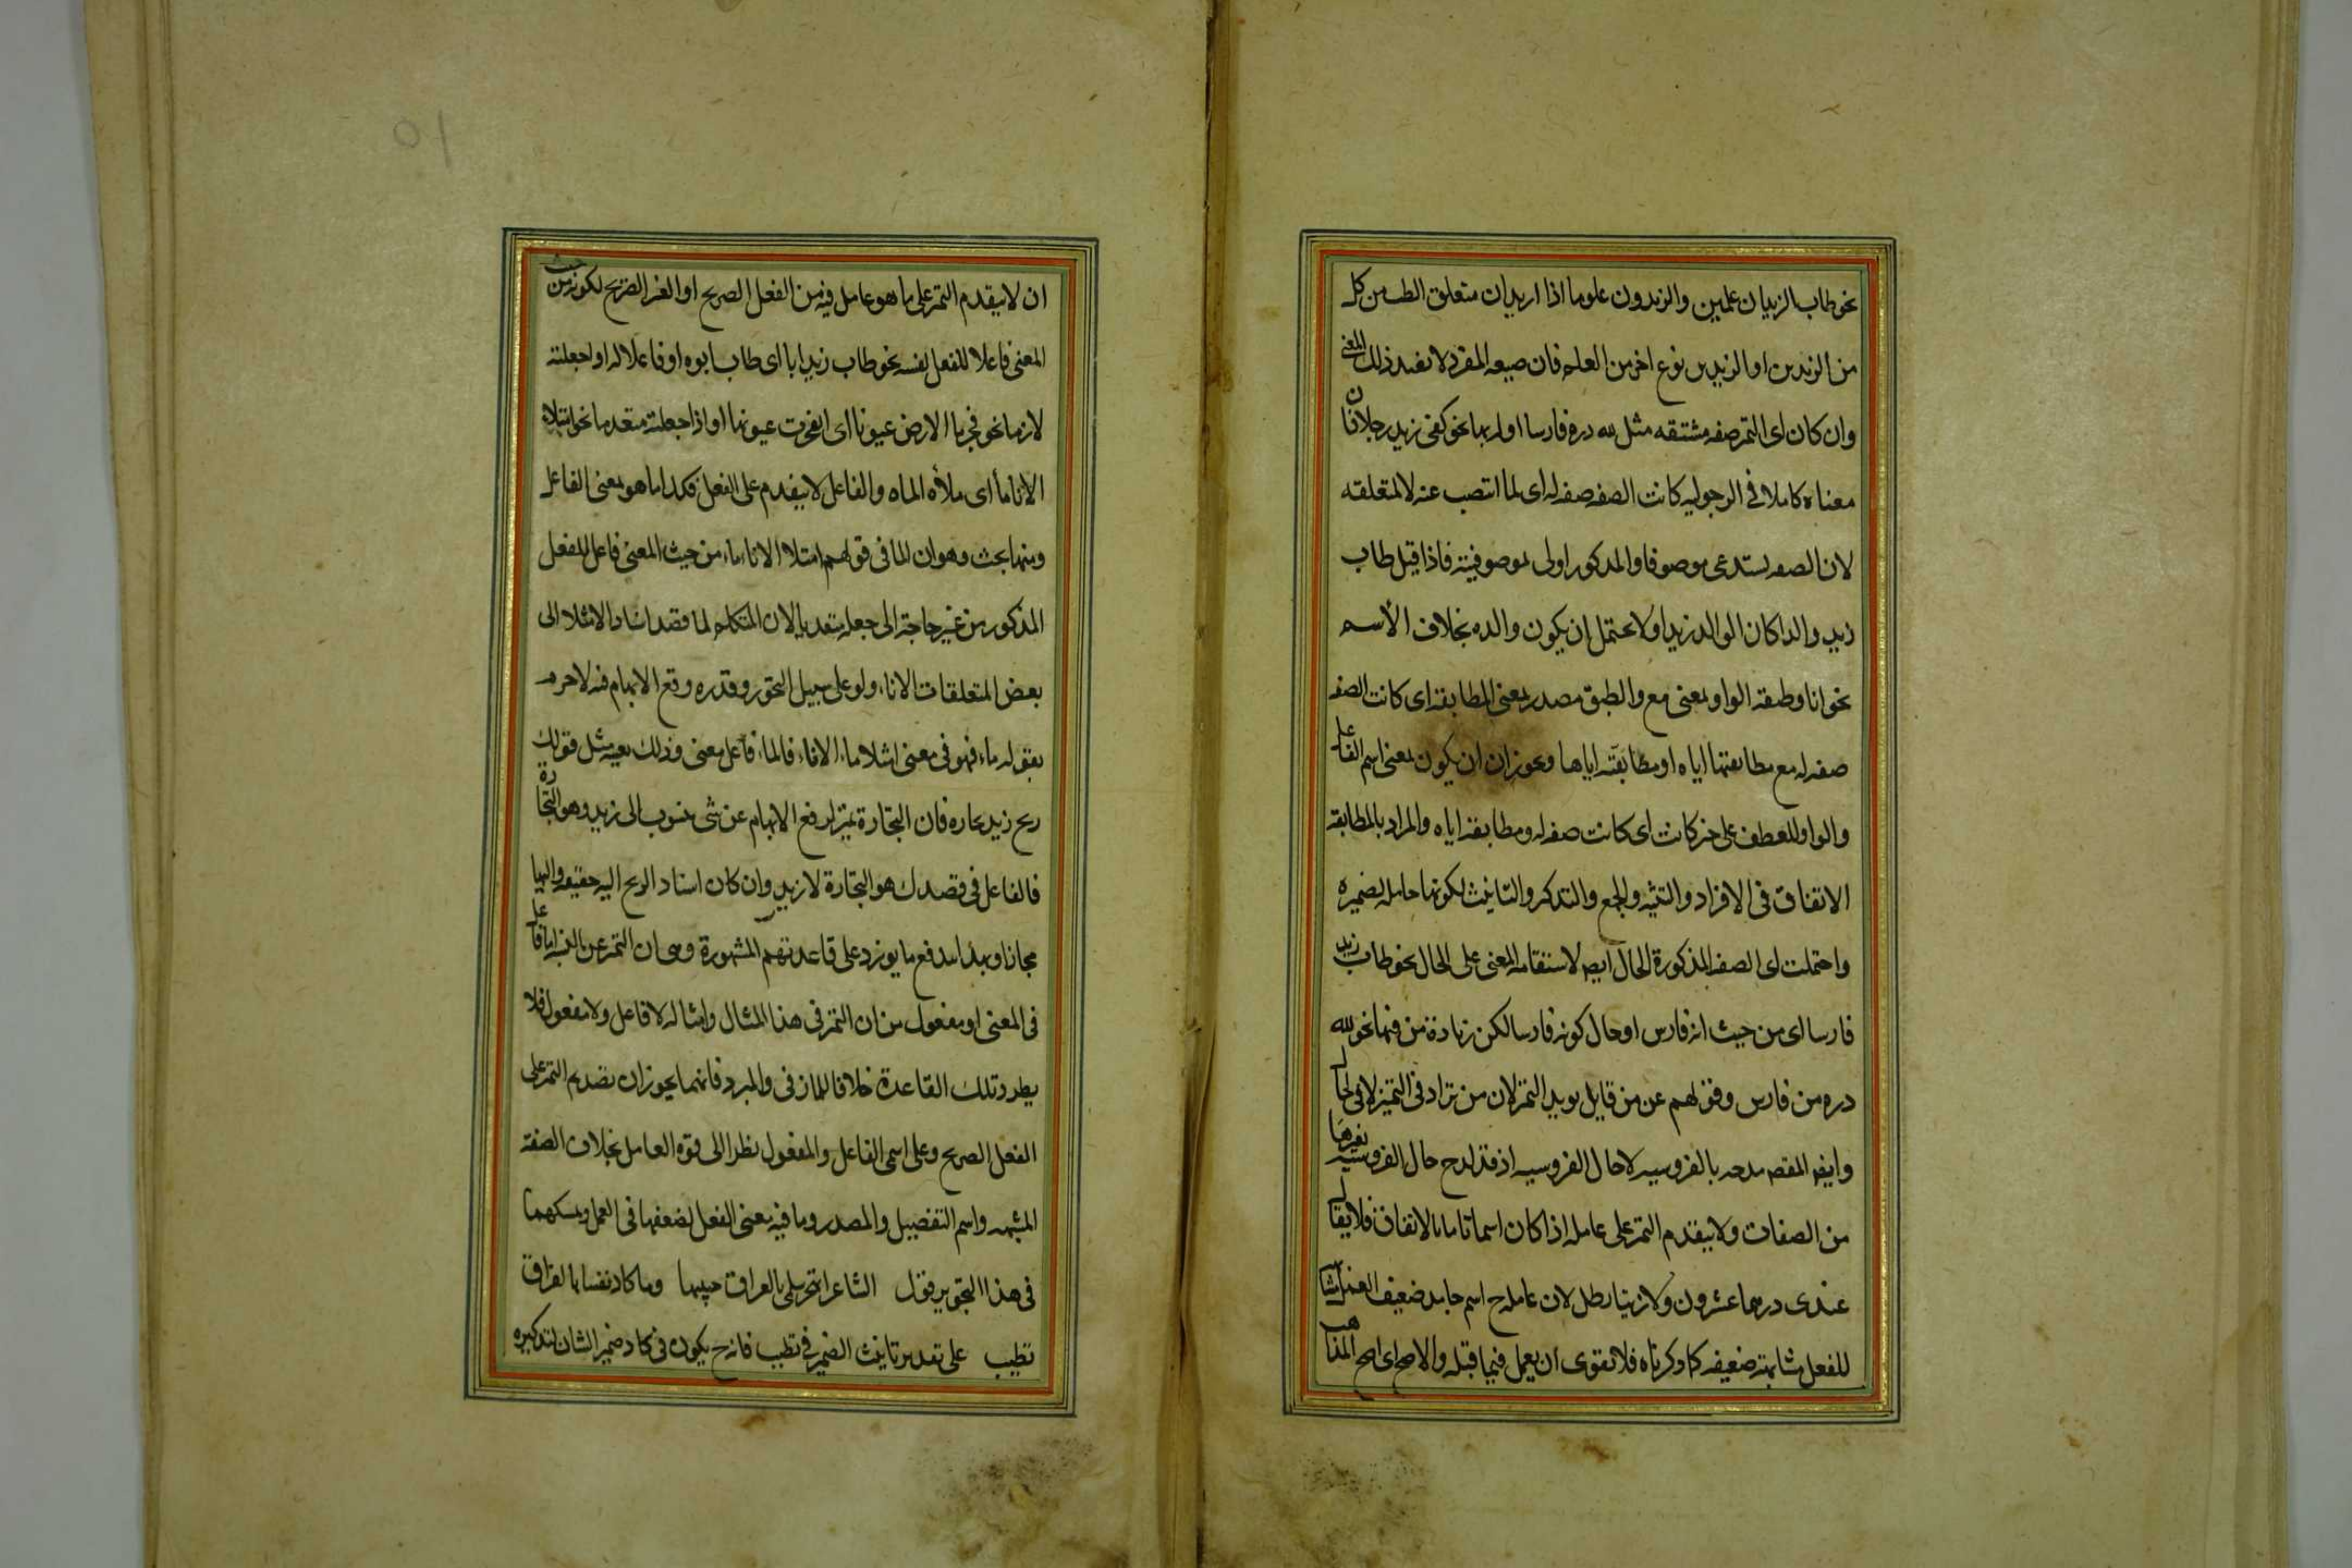 نحو طاب الزيدان علمين والزيدون علوما اذا اريد ان متعلق الطيب من كل
من الزيدين او الزيدين نوع اخر من العلم فان صيغه المفرد لا تفيد ذلك المعنى
وان كان اى التميز صفه مشتقه مثل لله دره فارسا اولا بها نحو كفى زيد رجلا فان
معناه كاملا فى الرجوليه كانت الصفه صفه له اى لما انتصب عنه لا لمتعلقه
لان الصفه تستدعى موصوفا والمذكور اولى بموصوفيته فاذا قيل طاب
زيد والدا كان الوالد زيدا ولا يحتمل ان يكون والده بخلاف الاسم
نحو ابا وطبقه الواو بمعنى مع والطبق مصدر بمعنى المطابقه اى كانت الصفه
صفه له مع مطابقتها اياه او مطابقته اياها ويجوز ان يكون بمعنى اسم الفاعل
والواو للعطف على خبر كانت اى كانت صفه له ومطابقه اياه والمراد بالمطابقه
الاتفاق فى الافراد والتثنيه والجمع والتذكير والتانيث لكونها حامله لضميره
واحتملت اى الصفه المذكورة الحال ايضا لاستقامه المعنى على الحال نحو طاب زيد
فارسا اى من حيث انه فارس او حال كونه فارسا لكن زيادة من فيها نحو لله
دره من فارس وقولهم عز من قايل يويد التميز لان من تزاد فى التميز لا فى الحال
وايضا المقصود مدحه بالفروسيه لا حال الفروسيه اذ قد يمدح حال الفروسيه بغيرها
من الصفات ولا يتقدم التميز على عامله اذا كان اسما تاما بالاتفاق فلا يقال
عندى درهما عشرون ولا زيتا رطل لان عامله ح اسم جامد ضعيف العمل مشابه
للفعل مشابهة ضعيفه كما ذكرناه فلا يقوى ان يعمل فيما قبله والاصح اى اصح المذاهب
ان لا يتقدم التميز على ما هو عامل فيه من الفعل الصريح او الغير الصريح لكونه من حيث
المعنى فاعلا للفعل نفسه نحو طاب زيد ابا اى طاب ابوه او فاعلا له اذا جعلته
لازما نحو فجرنا الارض عيونا اى انفجرت عيونها او اذا جعلته متعديا نحو امتلا
الاناء ماء اى ملأه الماء والفاعل لا يتقدم على الفعل فكذا ما هو بمعنى الفاعل
وههنا بحث وهو ان الما فى قولهم امتلا الاناء ماء من حيث المعنى فاعل للفعل
المذكور من غير حاجة الى جعله متعديا لان المتكلم لما قصد اسناد الامتلا الى
بعض المتعلقات الاناء ولو على سبيل التجوز وقدره وقع الابهام فيه لا جرم
بقوله ماء فهو فى معنى امتلا ماء الاناء فالماء فاعل معنى وذلك بعينه مثل قولك
ربح زيد تجاره فان التجارة تميز لرفع الابهام عن شى منسوب الى زيد وهو التجارة
فالفاعل فى قصدك هو التجارة لا زيد وان كان اسناد الربح اليه حقيقه واليها
مجازا وبهذا يندفع ما يورد على قاعدتهم المشهورة وهى ان التميز عن النسبه اما فاعل
فى المعنى او مفعول من ان التميز فى هذا المثال وامثاله لا فاعل ولا مفعول فلا
يطرد تلك القاعدة خلافا للمازنى والمبرد فانهما يجوزان تقديم التميز على
الفعل الصريح وعلى اسمى الفاعل والمفعول نظرا الى قوه العامل بخلاف الصفة
المشبهه واسم التفضيل والمصدر وما فيه معنى الفعل لضعفها فى العمل ومتمسكهما
فى هذا التجويز قول الشاعر اتهجر سلمى بالعراق حبيبها وما كاد نفسا بالفراق
تطيب على تقدير تانيث الضمير فى تطيب فانه ح يكون فى كاد ضمير الشان لتذكيره